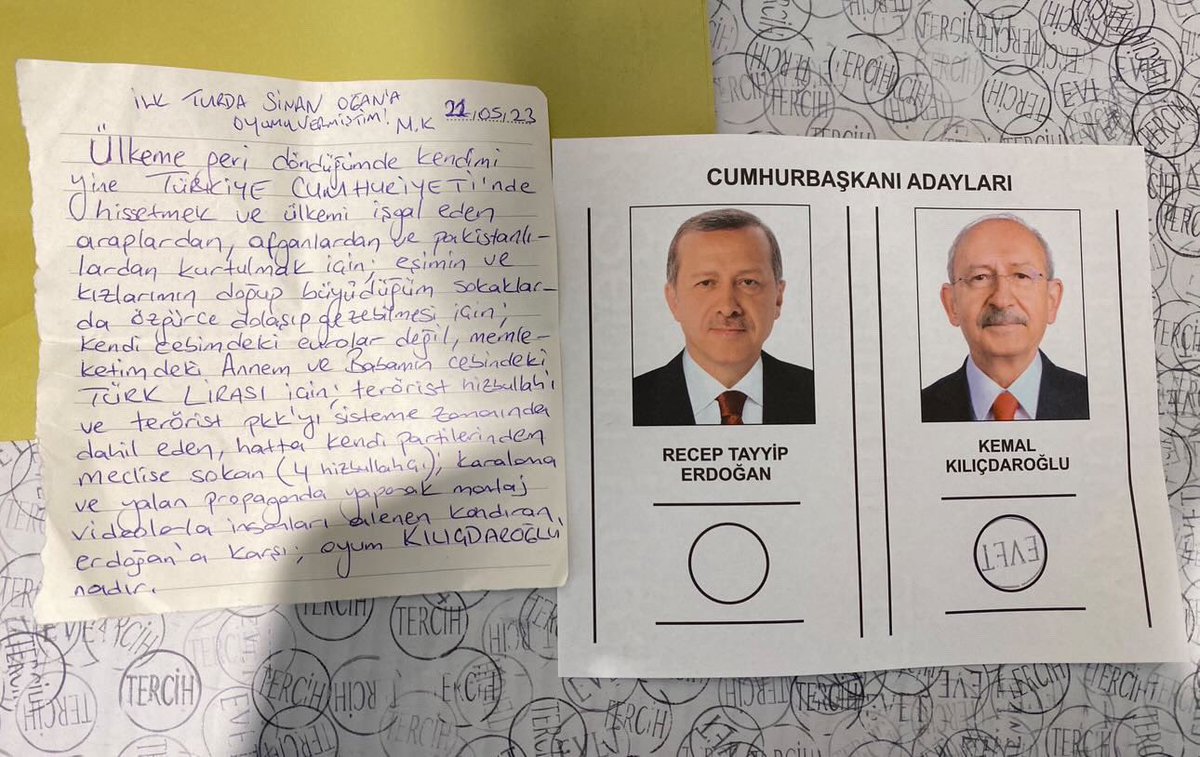 İLK TURDA SİNAN OĞAN'A
OYUMU VERMİŞTİM! M.K
21.05.23
Ülkeme geri döndüğümde kendimi
yine TÜRKİYE CUMHURİYETİ'nde
hissetmek ve ülkemi işgal eden
araplardan, afganlardan ve pakistanlı-
lardan kurtulmak için; eşimin ve
kızlarımın doğup büyüdüğüm sokaklar-
da özgürce dolaşıp gezebilmesi için;
kendi cebimdeki eurolar değil, memle-
ketimdeki Annem ve Babamın cebindeki
TÜRK LİRASI için; terörist hizbullah'ı
ve terörist pkk'yı sisteme zamanında
dahil eden, hatta kendi partilerinden
meclise sokan (4 hizbullahçı); karalama
ve yalan propaganda yaparak montaj
videolarla insanları alenen kandıran
erdoğan'a karşı; oyum KILIÇDAROĞLU'
nadır.
CUMHURBAŞKANI ADAYLARI
RECEP TAYYİP
ERDOĞAN
KEMAL
KILIÇDAROĞLU
EVET
TERCİH
TERCİH
TERCİH
TERCİH
TERCİH
EVET
TERCİH
TERCİH
TERCİH
TERCİH